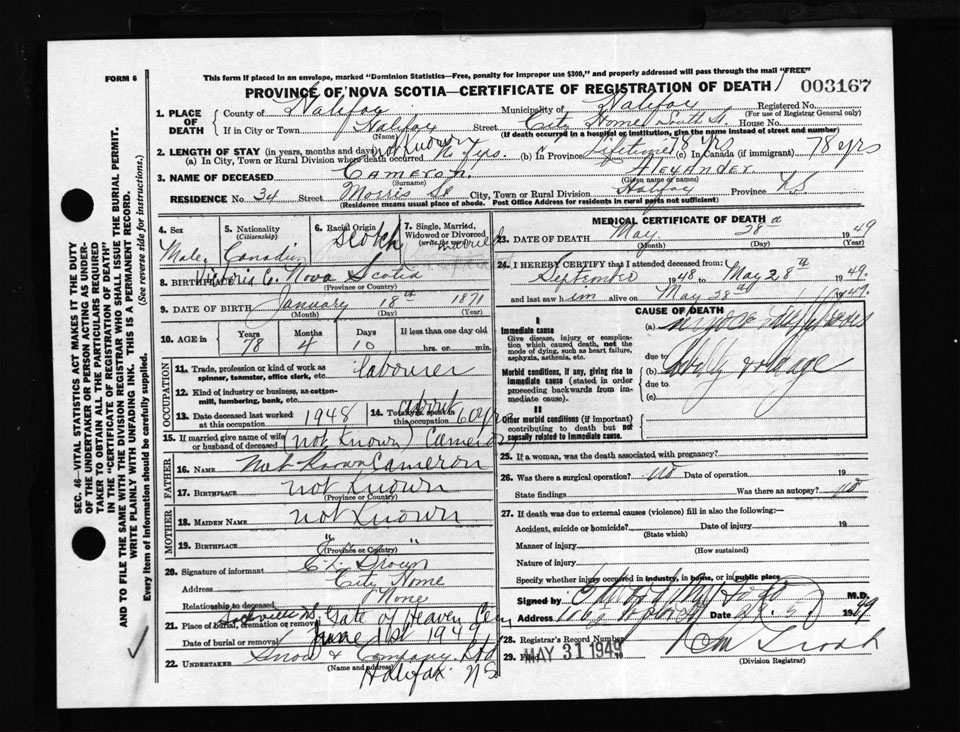 FORM 6
This form if placed in an envelope, marked "Dominion Statistics—Free, penalty for improper use $300," and properly addressed will pass through the mail "FREE"
PROVINCE OF NOVA SCOTIA—CERTIFICATE OF REGISTRATION OF DEATH
003167
1. PLACE OF DEATH
County of Halifax Municipality of Halifax Registered No.
(For use of Registrar General only)
If in City or Town Halifax Street City Home South St. House No.
(Name) (If death occurred in a hospital or institution, give the name instead of street and number)
2. LENGTH OF STAY (in years, months and days)
(a) In City, Town or Rural Division where death occurred not known No. Yrs. (b) In Province Lifetime 78 yrs (c) In Canada (if immigrant) 78 yrs
3. NAME OF DECEASED Cameron Alexander
(Surname) (Given name or names)
RESIDENCE No. 34 Street Morris St City, Town or Rural Division Halifax Province N.S
(Residence means usual place of abode. Post Office Address for residents in rural parts not sufficient)
4. Sex Male
5. Nationality (Citizenship) Canadian
6. Racial Origin Scotch
7. Single, Married, Widowed or Divorced (write the word) Married
8. BIRTHPLACE Victoria Co. Nova Scotia
(Province or Country)
9. DATE OF BIRTH January 18th 1871
(Month) (Day) (Year)
10. AGE in Years 78 Months 4 Days 10 If less than one day old hrs. or min.
OCCUPATION
11. Trade, profession or kind of work as spinner, teamster, office clerk, etc. labourer
12. Kind of industry or business, as cotton-mill, lumbering, bank, etc.
13. Date deceased last worked at this occupation 1948
14. Total years spent in this occupation about 60 yrs
15. If married give name of wife or husband of deceased (not known) Cameron
FATHER
16. NAME Not Known Cameron
17. BIRTHPLACE not Known
(Province or Country)
MOTHER
18. MAIDEN NAME not Known
19. BIRTHPLACE " "
(Province or Country)
20. Signature of informant
Address City Home
Relationship to deceased None
21. Place of burial, cremation or removal Sackville N.S. Gate of Heaven Cem
Date of burial or removal June 1st 1949
22. UNDERTAKER Snow & Company Ltd
(Name and address)
Halifax NS
MEDICAL CERTIFICATE OF DEATH
23. DATE OF DEATH May 28th 1949
(Month) (Day) (Year)
24. I HEREBY CERTIFY that I attended deceased from:
September 1948 to May 28th 1949.
and last saw him alive on May 28th 1949.
CAUSE OF DEATH
I
Immediate cause
Give disease, injury or complication which caused death, not the mode of dying, such as heart failure, asphyxia, asthenia, etc.
(a)
due to
Morbid conditions, if any, giving rise to immediate cause (stated in order proceeding backwards from immediate cause).
(b)
due to
(c)
II
Other morbid conditions (if important) contributing to death but not causally related to immediate cause.
25. If a woman, was the death associated with pregnancy?
26. Was there a surgical operation? no Date of operation 19
State findings Was there an autopsy? no
27. If death was due to external causes (violence) fill in also the following:—
Accident, suicide or homicide? Date of injury 19
(State which)
Manner of injury
(How sustained)
Nature of injury
Specify whether injury occurred in industry, in home, or in public place
Signed by M.D.
Address Date 29.5. 1949
28. Registrar's Record Number
29. Filed MAY 31 1949
(Division Registrar)
SEC. 46—VITAL STATISTICS ACT MAKES IT THE DUTY
OF THE UNDERTAKER OR PERSON ACTING AS UNDERTAKER TO OBTAIN ALL THE PARTICULARS REQUIRED
IN THE "CERTIFICATE OF REGISTRATION OF DEATH"
AND TO FILE THE SAME WITH THE DIVISION REGISTRAR WHO SHALL ISSUE THE BURIAL PERMIT.
WRITE PLAINLY WITH UNFADING INK. THIS IS A PERMANENT RECORD.
Every item of Information should be carefully supplied. (See reverse side for instructions.)